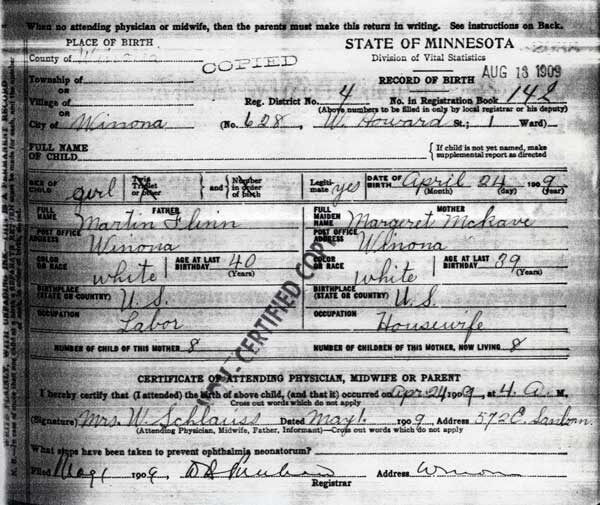 When no attending physician or midwife, then the parents must make this return in writing. See instructions on Back.
PLACE OF BIRTH
STATE OF MINNESOTA
County of Winona
COPIED
Division of Vital Statistics
Township of
RECORD OF BIRTH
AUG 13 1909
OR
Village of
Reg. District No. 4 No. in Registration Book 148
OR
(Above numbers to be filled in only by local registrar or his deputy)
City of Winona (No. 628, W. Howard St; 1 Ward)
FULL NAME
OF CHILD
{ If child is not yet named, make
supplemental report as directed
SEX OF CHILD girl
Twin
Triplet
or other
} and {
Number
in order
of birth
Legiti-
mate yes
DATE OF
BIRTH April 24 1909
(Month) (day) (year)
FULL
NAME
FATHER
Martin Flinn
FULL
MAIDEN
NAME
MOTHER
Margeret McKave
POST OFFICE
ADDRESS Winona
POST OFFICE
ADDRESS Winona
COLOR
OR RACE white
AGE AT LAST
BIRTHDAY 40
(Years)
COLOR
OR RACE white
AGE AT LAST
BIRTHDAY 39
(Years)
BIRTHPLACE
(STATE OR COUNTRY) U.S.
BIRTHPLACE
(STATE OR COUNTRY) U.S.
OCCUPATION
Labor
OCCUPATION
Housewife
NUMBER OF CHILD OF THIS MOTHER 8
NUMBER OF CHILDREN OF THIS MOTHER, NOW LIVING 8
NON-CERTIFIED COPY
CERTIFICATE OF ATTENDING PHYSICIAN, MIDWIFE OR PARENT
I hereby certify that (I attended) the birth of above child, (and that it) occurred on Apr 24 1909, at 4. A. M.
Cross out words which do not apply
(Signature) Mrs. W. Schlauss Dated May 1. 1909 Address 572 E. Sanborn.
(Attending Physician, Midwife, Father, Informant)—Cross out words which do not apply
What steps have been taken to prevent ophthalmia neonatorum?
Filed 1909 Address Winona
Registrar